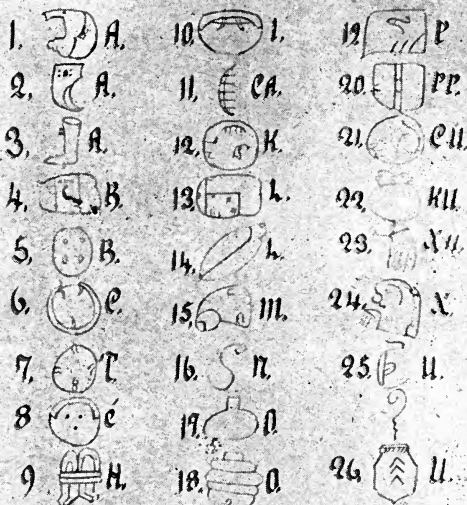 1. A.
2, A.
3, A.
4, B.
5, B.
6, C.
7, T.
8 É
9 H.
10. I.
11. CA.
12. K.
13. L.
14. L.
15. M.
16. N.
17. O.
18. O.
19. P
20. PP.
21. CU.
22. KU.
23. XU.
24. X.
25. U.
26. U.